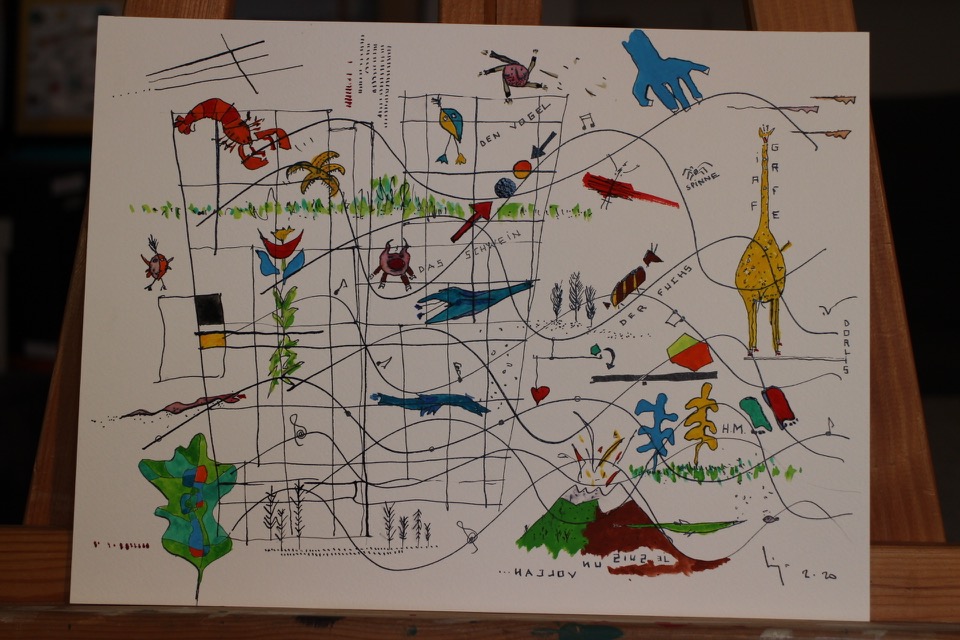 DEN VOGEL
SPINNE
GIRAFFE
DAS SCHWEIN
DER FUCHS
DORLIS
H.M.
JE SUIS UN
VOLCAN...
2.20